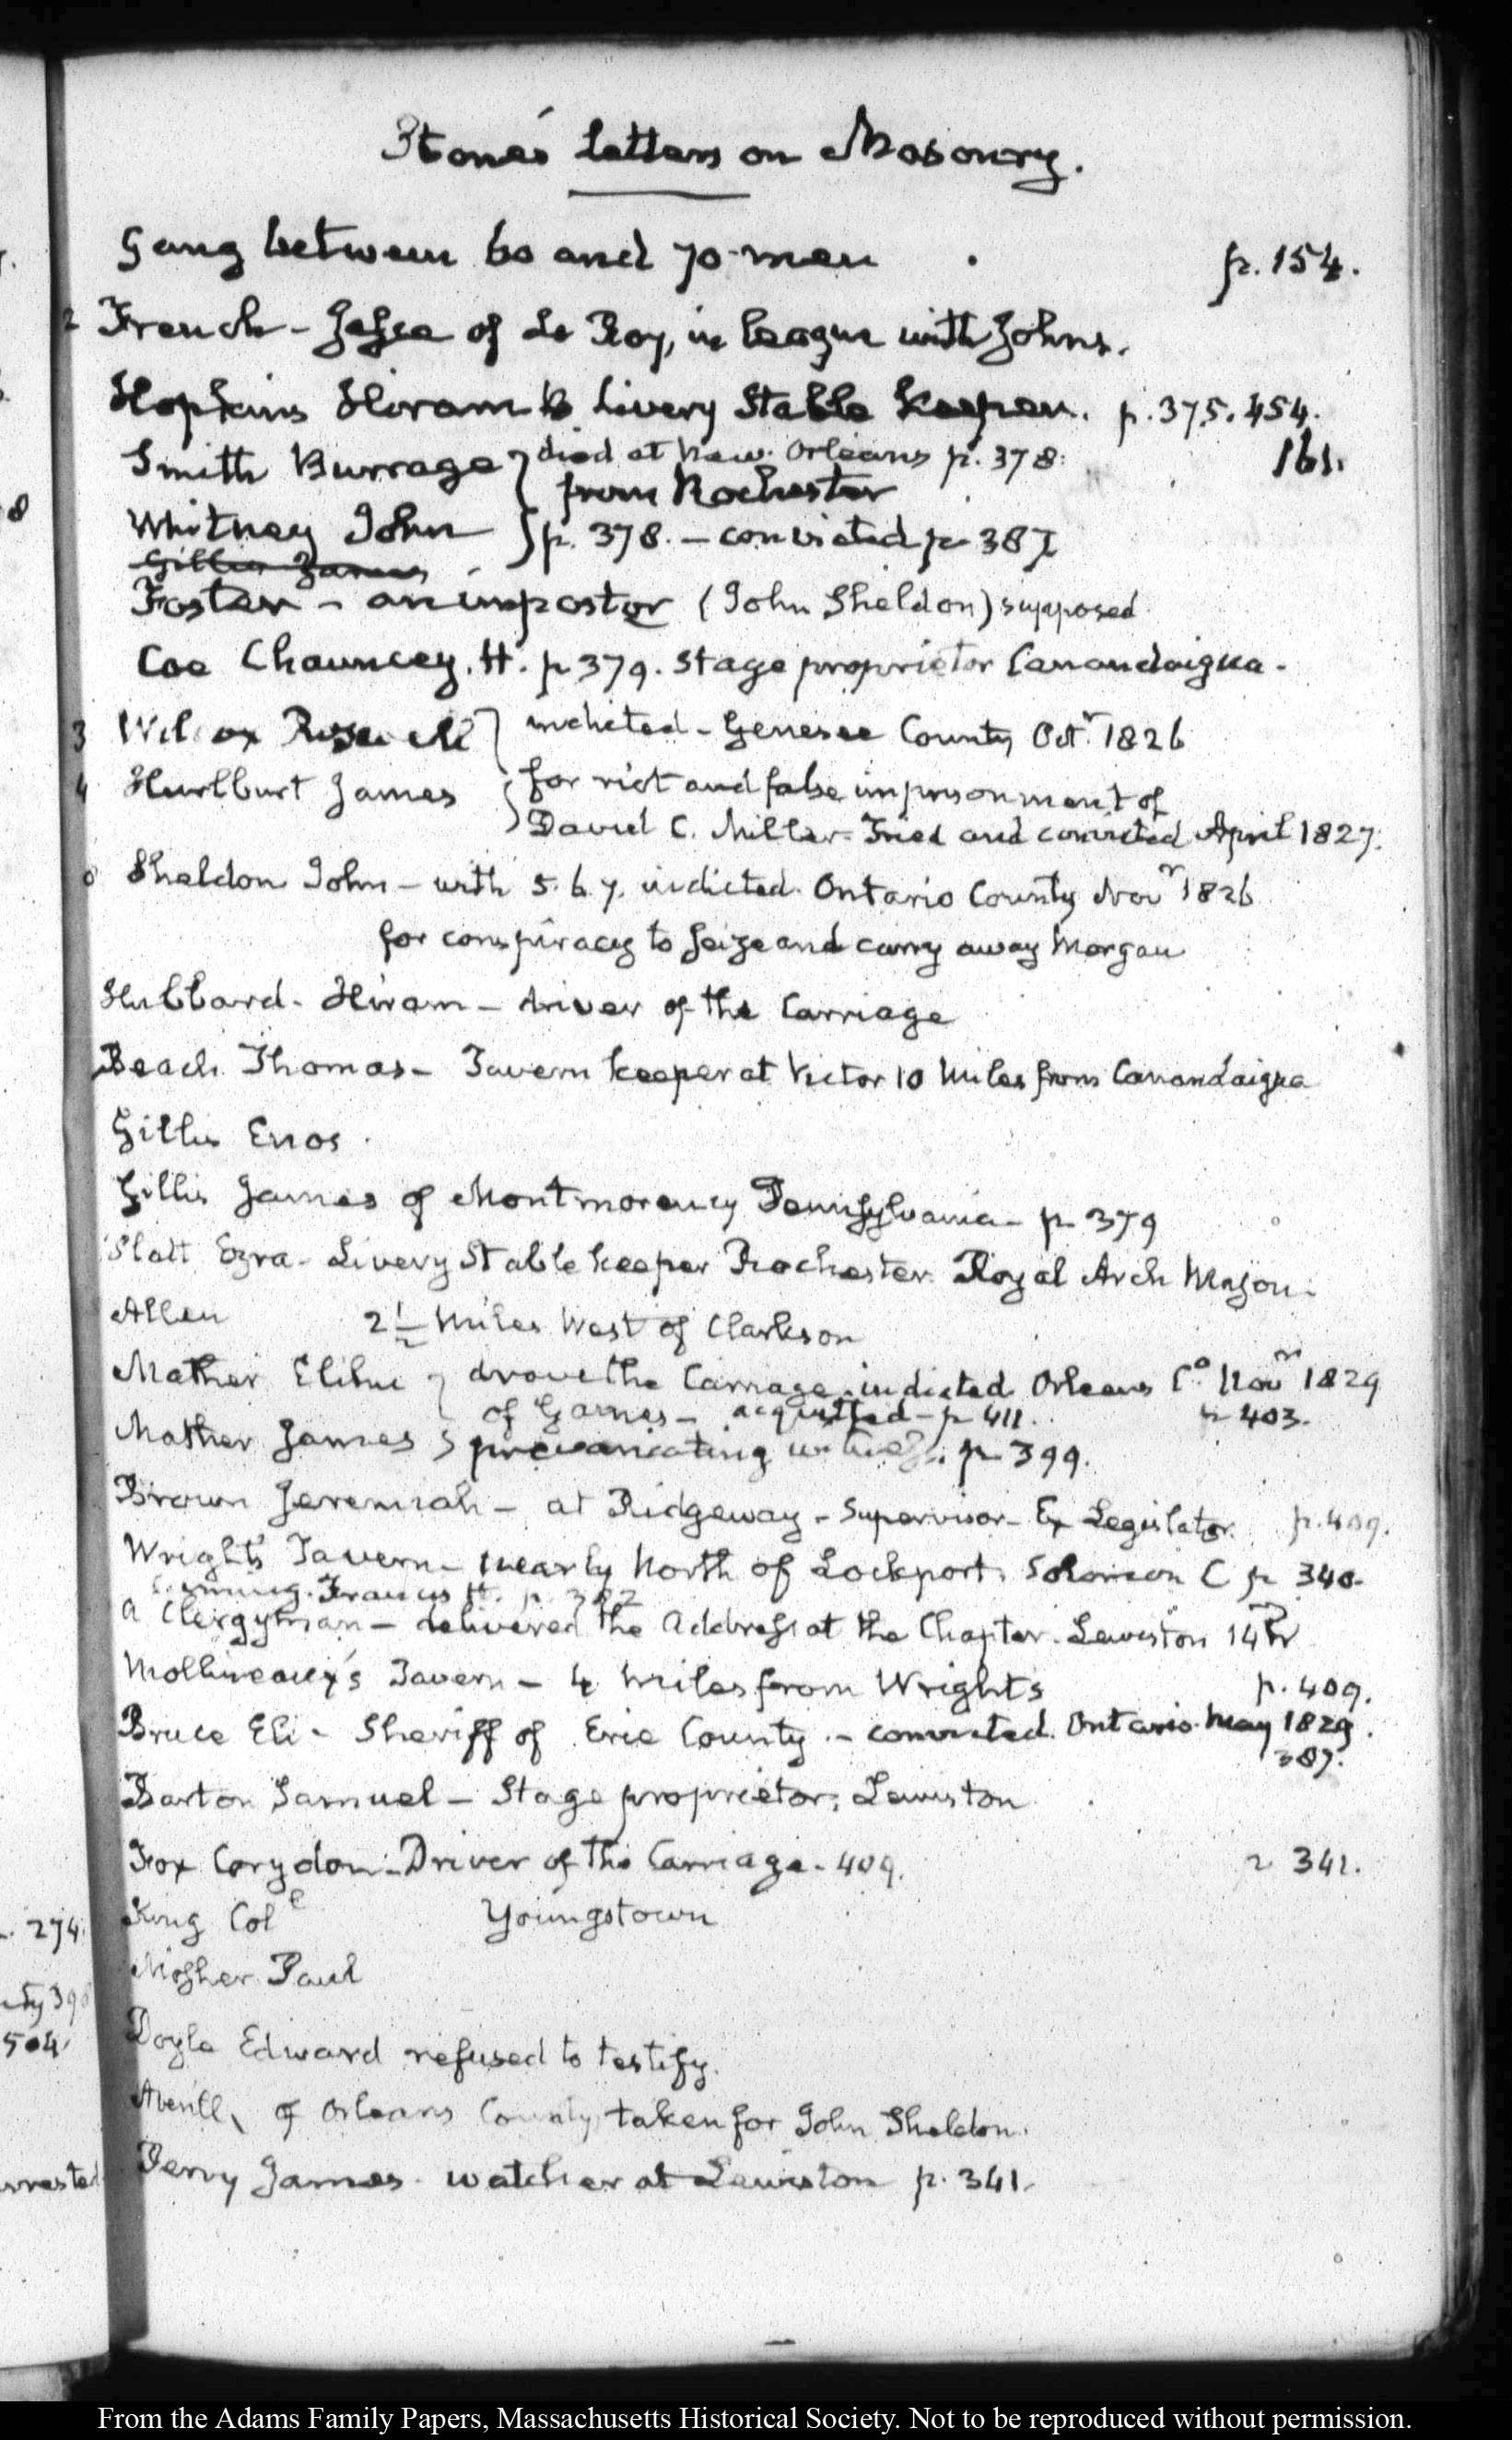 Stone's letters on Masonry.
Gang between 60 and 70 men . p. 154.
2 French - Jesse of Le Roy, in league with Johns.
Hopkins Hiram B Livery Stable Keeper. p. 375. 454.
Smith Burrage } died at New Orleans p. 378. 161.
from Rochester
Whitney John } p. 378. - convicted p 387
Gillis James -
Foster - an impostor (John Sheldon) supposed
Coe Chauncey. H. p 379. Stage proprietor Canandaigua -
3 Wilcox Roswell } indicted - Genesee County Octr 1826
4 Hurlburt James } for riot and false imprisonment of
David C. Miller - Tried and convicted April 1827.
8 Sheldon John - with 5. 6. 7. indicted Ontario County Novr 1826
for conspiracy to seize and carry away Morgan
Hubbard. Hiram - driver of the Carriage
Beach Thomas - Tavern keeper at Victor 10 Miles from Canandaigua
Gillis Enos.
Gillis James of Montmorency Pennsylvania - p 379
Platt Ezra - Livery Stable keeper Rochester. Royal Arch Mason.
Allen 2½ Miles West of Clarkson
Mather Elihu } drove the Carriage indicted Orleans Co. Novr 1829
of Gaines - acquitted - p 411. p 403.
Mather James } prevaricating witness. p 399.
Brown Jeremiah - at Ridgeway - Supervisor - Ex Legislator p. 409.
Wright's Tavern - nearly North of Lockport. Solomon C p 340.
Francis H. p. 382
a Clergyman - delivered the address at the Chapter. Lewiston 14th
Mollineaux's Tavern - 4 Miles from Wrights p. 409.
Bruce Eli - Sheriff of Erie County. - convicted Ontario May 1829.
387.
Barton Samuel - Stage proprietor, Lewiston
Fox Corydon - Driver of the Carriage - 409. 341.
King Coll Youngstown
Mosher Paul
Doyle Edward refused to testify.
Averill, of Orleans County, taken for John Sheldon.
Perry James. watcher at Lewiston p. 341.
274
504
From the Adams Family Papers, Massachusetts Historical Society. Not to be reproduced without permission.